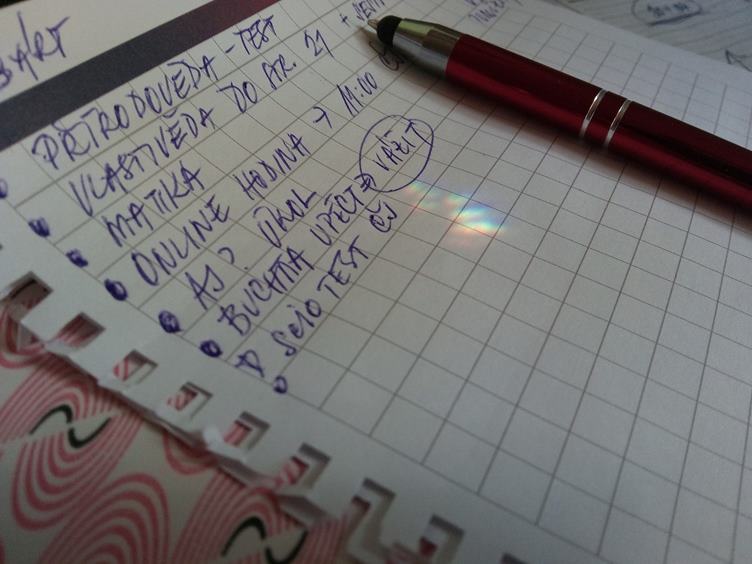 PŘÍRODOVĚDA - TEST
VLASTIVĚDA DO STR. 21 + SEŠIT
MATIKA
ONLINE HODINA → 11:00 ČJ
AJ? ÚKOL
BUCHTA UPÉCT → VÁŽIT
SCIO TEST ČJ